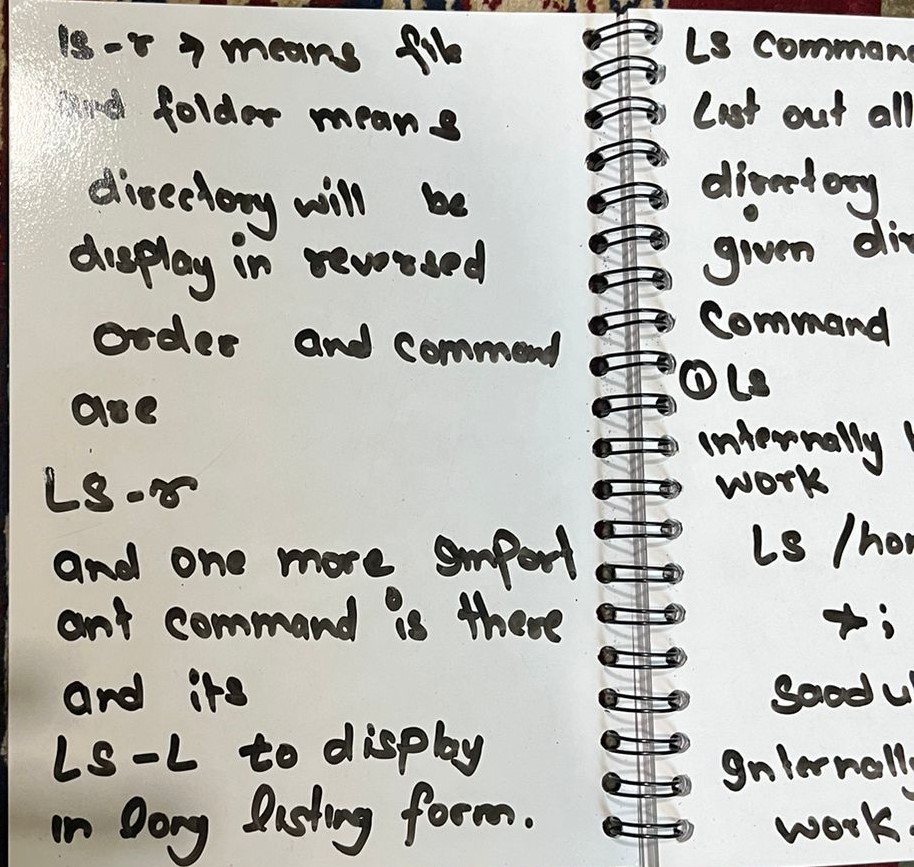 ls-r → means file
and folder means
directory will be
display in reversed
order and command
are
LS-r
and one more import
ant command is there
and its
LS-L to display
in long listing form.
LS Comman
List out all
directory
given dir
Command
① LS
internally
work
LS /ho
Saad
internally
work.